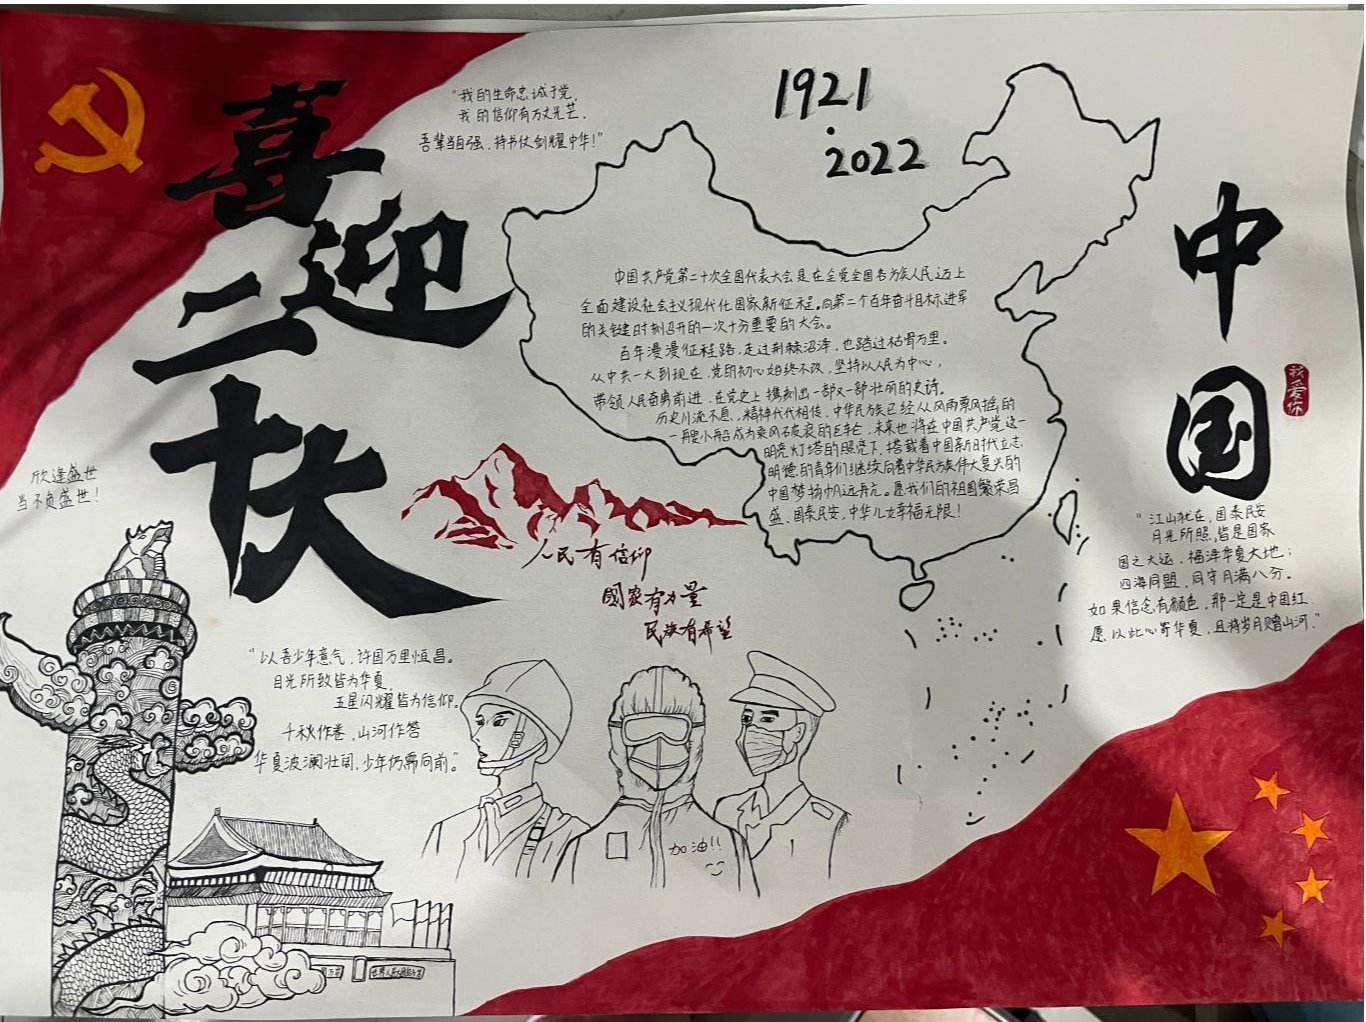 喜迎二十大
"我的生命忠诚于党,
我的信仰有万丈光芒.
吾辈当自强,持书仗剑耀中华!"
1921
·
2022
中国
我爱你
中国共产党第二十次全国代表大会是在全党全国各族人民迈上
全面建设社会主义现代化国家新征程,向第二个百年奋斗目标进军
的关键时刻召开的一次十分重要的大会。
百年漫漫征程路,走过荆棘沼泽,也踏过枯骨万里。
从中共一大到现在,党的初心始终不改,坚持以人民为中心,
带领人民奋勇前进,在党史上镌刻出一部又一部壮丽的史诗。
历史川流不息,精神代代相传,中华民族已经从风雨飘摇的
一艘小船成为乘风破浪的巨轮,未来也将在中国共产党这一
明亮灯塔的照亮下,搭载着中国新时代立志
明德的青年们继续向着中华民族伟大复兴的
中国梦扬帆远航。愿我们的祖国繁荣昌
盛、国泰民安,中华儿女幸福无限!
人民有信仰
國家有力量
民族有希望
欣逢盛世
当不负盛世!
"江山犹在,国泰民安
月光所照,皆是国家
国之大运,福泽华夏大地;
四海同盟,同守月满八分。
如果信念有颜色,那一定是中国红.
愿以此心寄华夏,且将岁月赠山河."
"以吾少年意气,许国万里恒昌。
目光所致皆为华夏,
五星闪耀皆为信仰。
千秋作卷,山河作答
华夏波澜壮阔,少年仍需向前。"
加油!!
万岁
世界人民大团结万岁